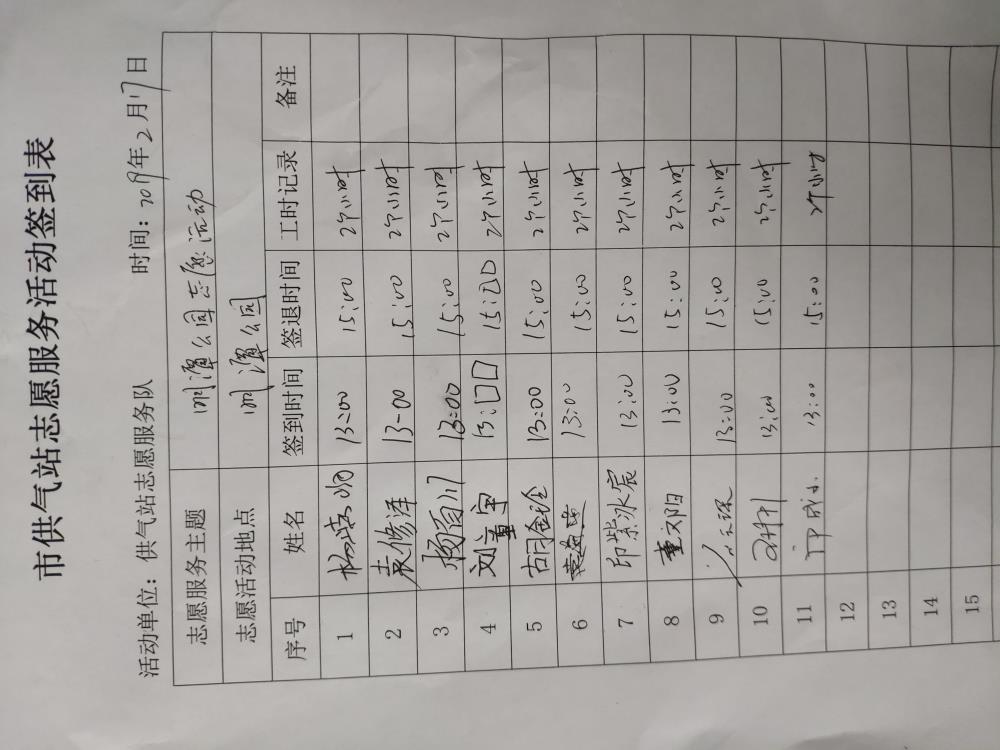 市供气站志愿服务活动签到表
活动单位：供气站志愿服务队 时间：2019年2月17日
志愿服务主题 明潭公园志愿活动
志愿活动地点 明潭公园
序号 姓名 签到时间 签退时间 工时记录 备注
1 13:00 15:00 2个小时
2 袁修泽 13-00 15:00 2个小时
3 杨百川 13:00 15:00 2个小时
4 刘童宝 13:00 15:00 2个小时
5 胡金铨 13:00 15:00 2个小时
6 13:00 15:00 2个小时
7 印紫冰宸 13:00 15:00 2个小时
8 董刘阳 13:00 15:00 2个小时
9 13:00 15:00 2个小时
10 13:00 15:00 2个小时
11 13:00 15:00 2个小时
12
13
14
15